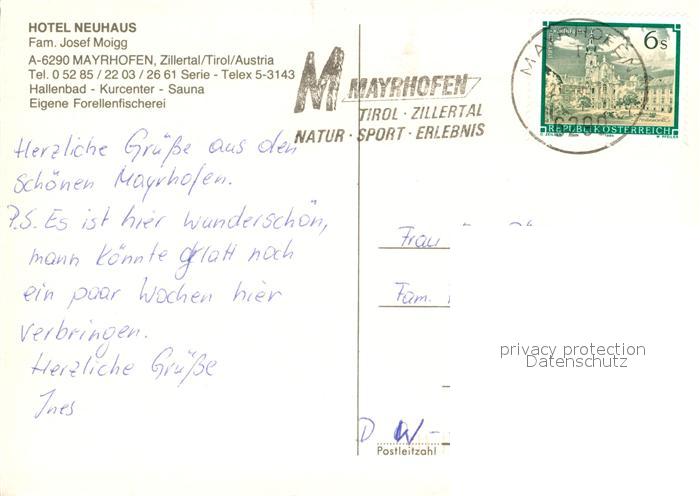 HOTEL NEUHAUS
Fam. Josef Moigg
A-6290 MAYRHOFEN, Zillertal/Tirol/Austria
Tel. 0 52 85 / 22 03 / 26 61 Serie - Telex 5-3143
Hallenbad - Kurcenter - Sauna
Eigene Forellenfischerei
M MAYRHOFEN
TIROL · ZILLERTAL
NATUR · SPORT · ERLEBNIS
MAYRHOFEN
6290
6s
REPUBLIK ÖSTERREICH
Herzliche Grüße aus den
schönen Mayrhofen.
P.S. Es ist hier wunderschön,
mann könnte glatt noch
ein paar Wochen hier
verbringen.
Herzliche Grüße
Ines
Frau
Fam.
privacy protection
Datenschutz
D W-
Postleitzahl